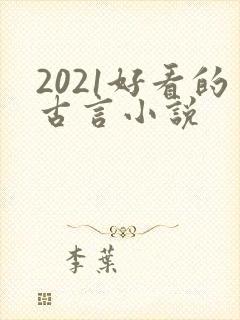 2021好看的
古言小説
李葉